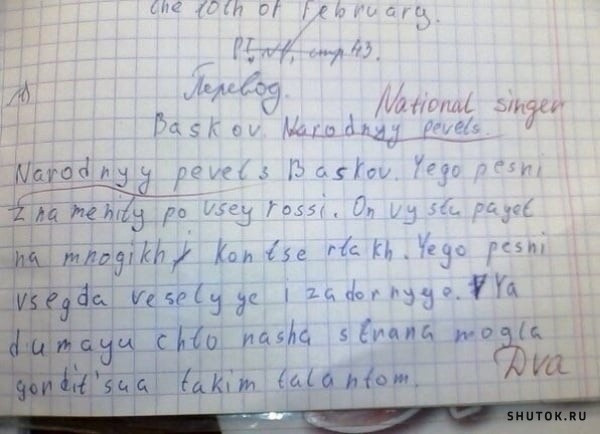 the 10th of February.
PI, N1, стр 43.
Перевод.
National singer
Baskov. Narodnyy pevets.
Narodnyy pevets Baskov. Yego pesni
znamenity po vsey rossi. On vystupayet
na mnogikh kontsertakh. Yego pesni
vsegda veselyye i zadornyye. Ya
dumayu chto nasha strana mogla
gordit'saa takim talantom.
Dva
SHUTOK.RU